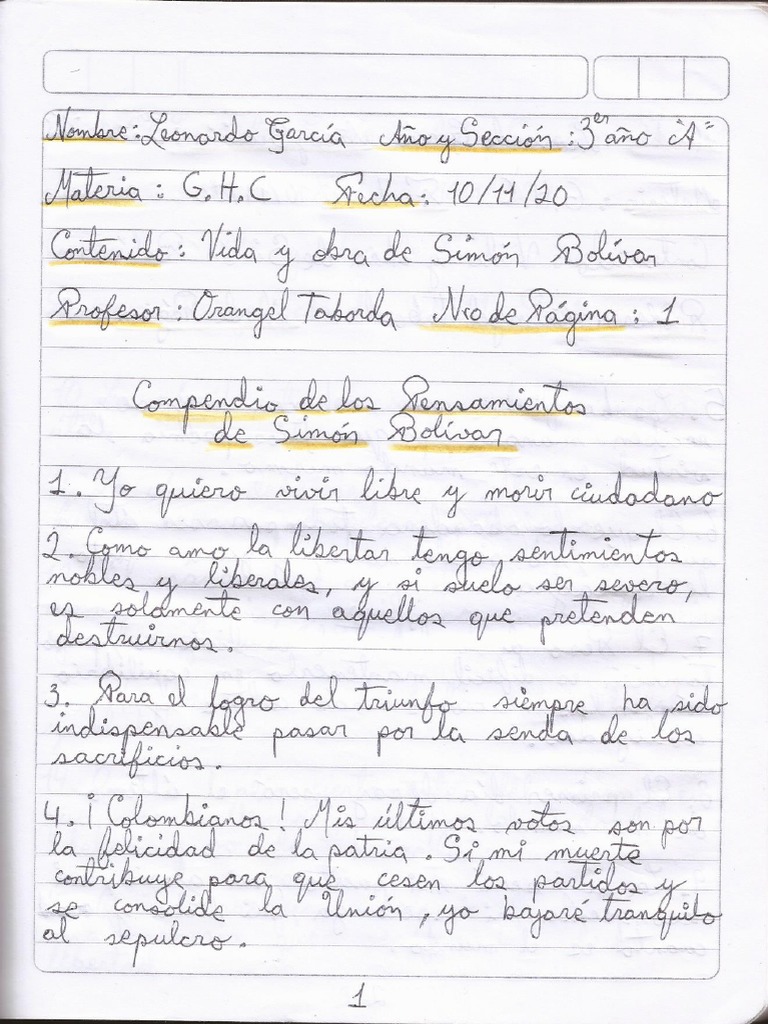 Nombre: Leonardo García Año y Sección: 3er año "A"
Materia: G.H.C Fecha: 10/11/20
Contenido: Vida y obra de Simón Bolívar
Profesor: Orangel Taborda Nro de Página: 1
Compendio de los Pensamientos
de Simón Bolívar
1. Yo quiero vivir libre y morir ciudadano
2. Como amo la libertar tengo sentimientos
nobles y liberales, y si suelo ser severo,
es solamente con aquellos que pretenden
destruirnos.
3. Para el logro del triunfo siempre ha sido
indispensable pasar por la senda de los
sacrificios.
4. ¡Colombianos! Mis últimos votos son por
la felicidad de la patria. Si mi muerte
contribuye para que cesen los partidos y
se consolide la Unión, yo bajaré tranquilo
al sepulcro.
1